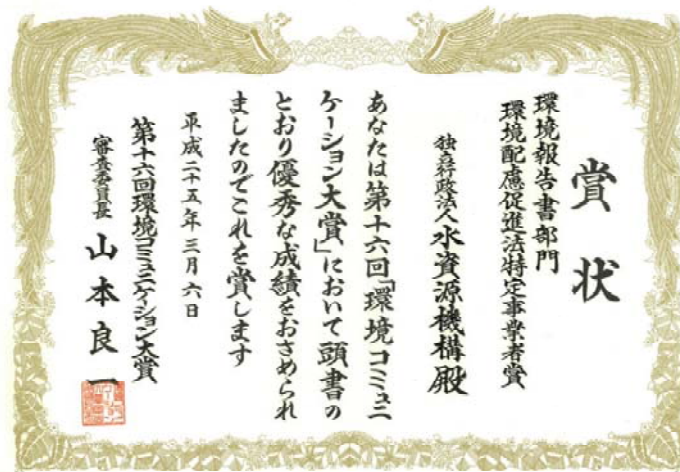 賞状
環境報告書部門
環境配慮促進法特定事業者賞
独立行政法人水資源機構殿
あなたは第十六回「環境コミュニ
ケーション大賞」において頭書の
とおり優秀な成績をおさめられ
ましたのでこれを賞します
平成二十五年三月六日
第十六回環境コミュニケーション大賞
審査委員長 山本良一